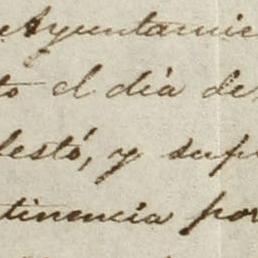 Ayuntamie
to el día de
lestó, y sup
tinencia por